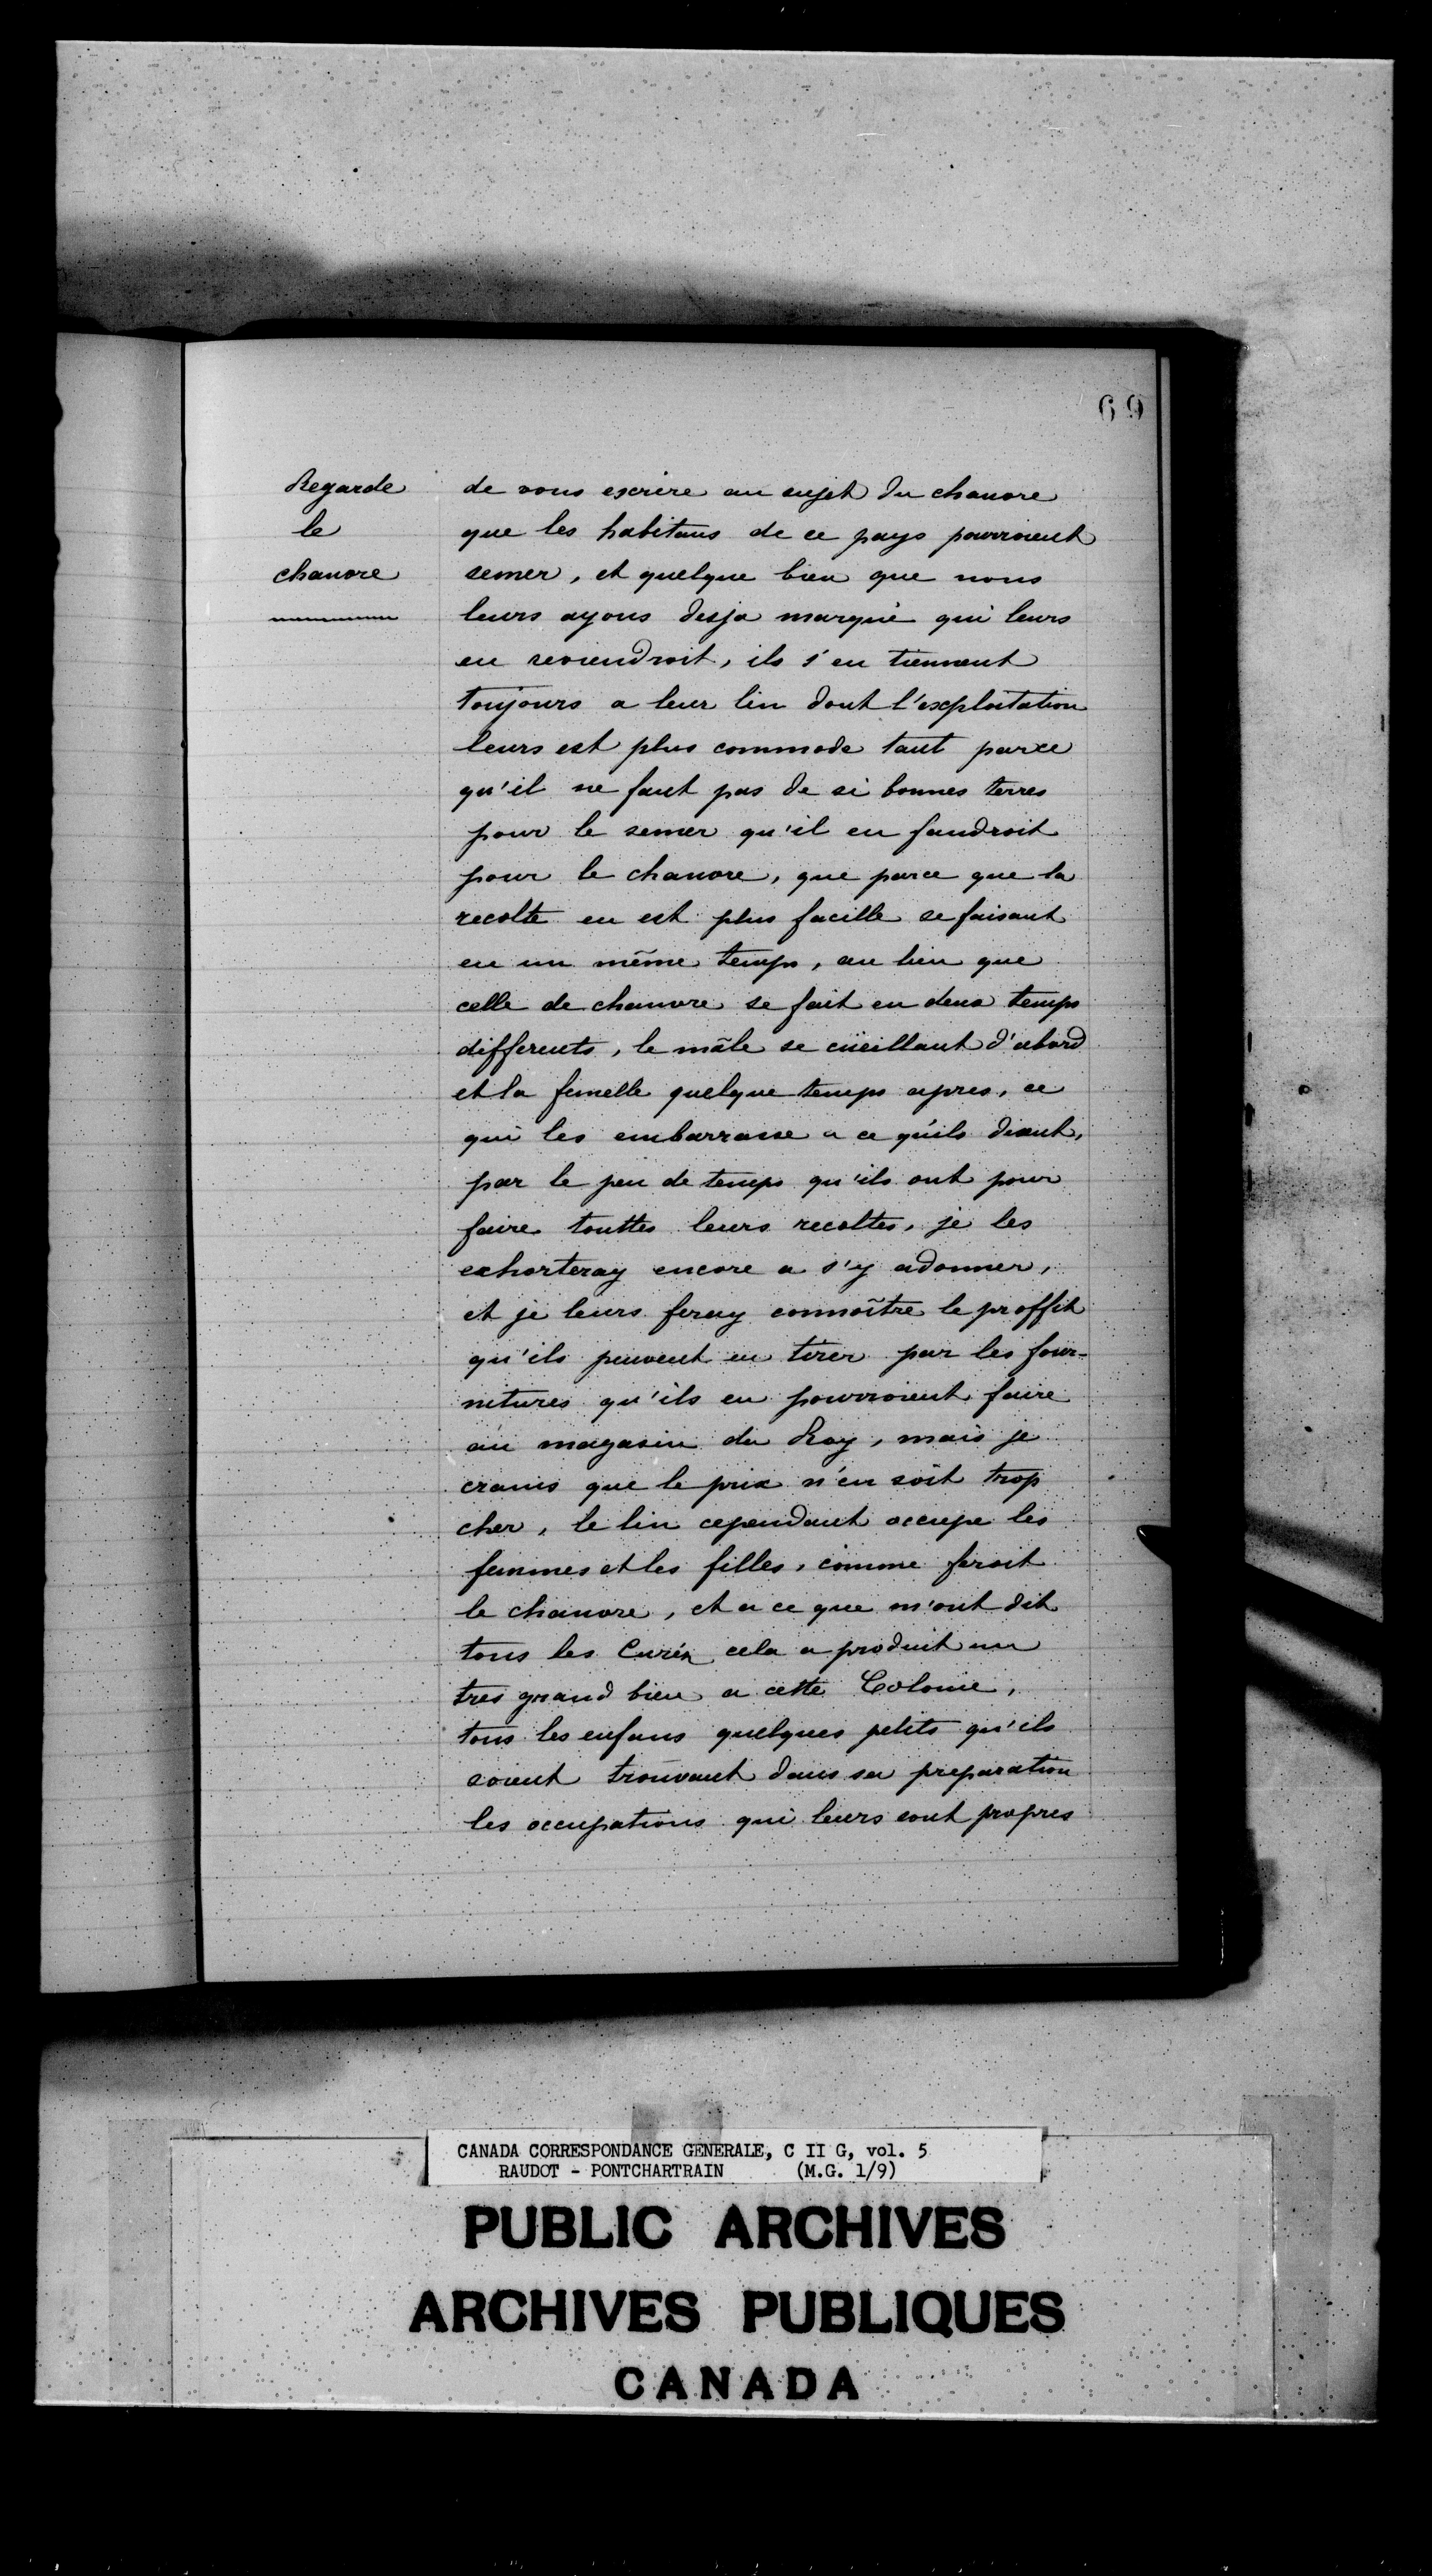 69
Regarde
le
chanvre
de vous escrire au sujet du chanvre
que les habitans de ce pays pourroient
semer, et quelque bien que nous
leurs ayons desja marqué qui leurs
en reviendroit, ils s'en tiennent
toujours a leur lin dont l'exploitation
leurs est plus commode tant parce
qu'il ne faut pas de si bonnes terres
pour le semer qu'il en faudroit
pour le chanvre, que parce que la
recolte en est plus facille se faisant
en un même temps, au lieu que
celle de chanvre se fait en deux temps
differents, le mâle se cüeillant d'abord
et la femelle quelque temps apres, ce
qui les embarrasse a ce qu'ils disent,
par le peu de temps qu'ils ont pour
faire touttes leurs recoltes, je les
exhorteray encore a s'y adonner,
et je leurs feray connoître le proffit
qu'ils peuvent en tirer par les four-
nitures qu'ils en pourroient faire
au magasin du Roy, mais je
crains que le prix n'en soit trop
cher, le lin cependant occupe les
femmes et les filles, comme feroit
le chanvre, et a ce que m'ont dit
tous les Curéz cela a produit un
tres grand bien a cette Colonie,
tous les enfans quelques petits qu'ils
soient trouvant dans sa preparation
les occupations qui leurs sont propres
CANADA CORRESPONDANCE GENERALE, C II G, vol. 5
RAUDOT - PONTCHARTRAIN (M.G. 1/9)
PUBLIC ARCHIVES
ARCHIVES PUBLIQUES
CANADA